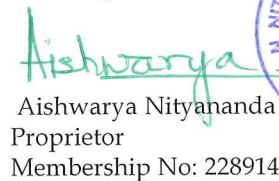 Aishwarya
Aishwarya Nityananda
Proprietor
Membership No: 228914